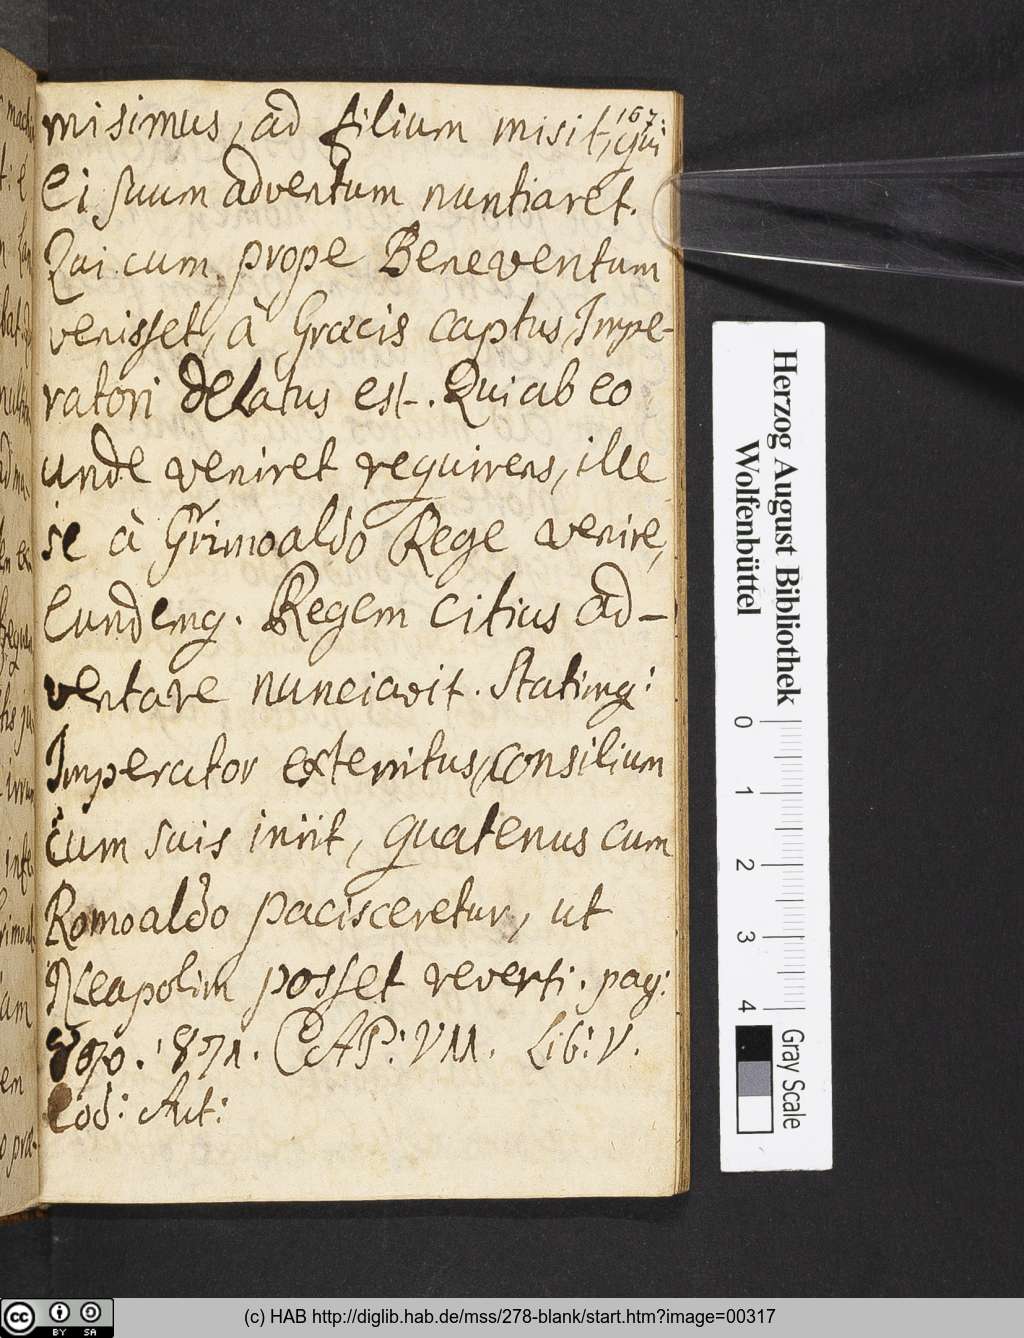 167.
misimus, ad filium misit, qui
ei suum adventum nuntiaret.
Qui cum prope Beneventum
venisset, à Græcis captus, Impe-
ratori delatus est. Qui ab eo
unde veniret requirens, ille
se à Grimoaldo Rege venire,
eundemq. Regem citius ad-
ventare nunciavit. Statimq:
Imperator exterritus, consilium
cum suis iniit, quatenus cum
Romoaldo pacisceretur, ut
Neapolim posset reverti. pag:
870. 871. CAP: VII. Lib: V.
eod: Aut:
Herzog August Bibliothek
Wolfenbüttel
0 1 2 3 4
Gray Scale
cc BY SA
(c) HAB http://diglib.hab.de/mss/278-blank/start.htm?image=00317